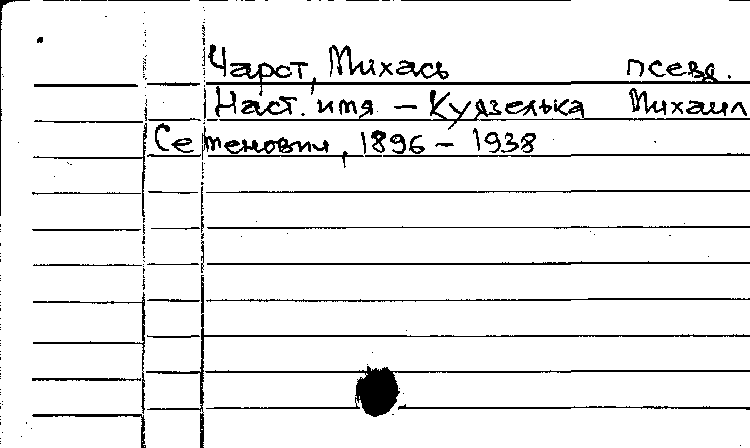 Чарот, Михась псевд.
Наст. имя – Кудзелька Михаил
Семенович, 1896 – 1938